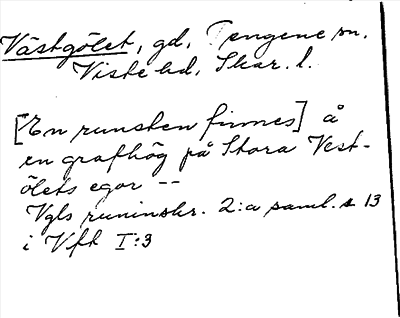 Västgölet, gd, Tengene sn.
Viste hd, Skar. l.
[En runsten finnes] å
en grafhög på Stora Vest-
ölets egor --
Vgls runinskr. 2:a saml. s 13
i Vfk I:3